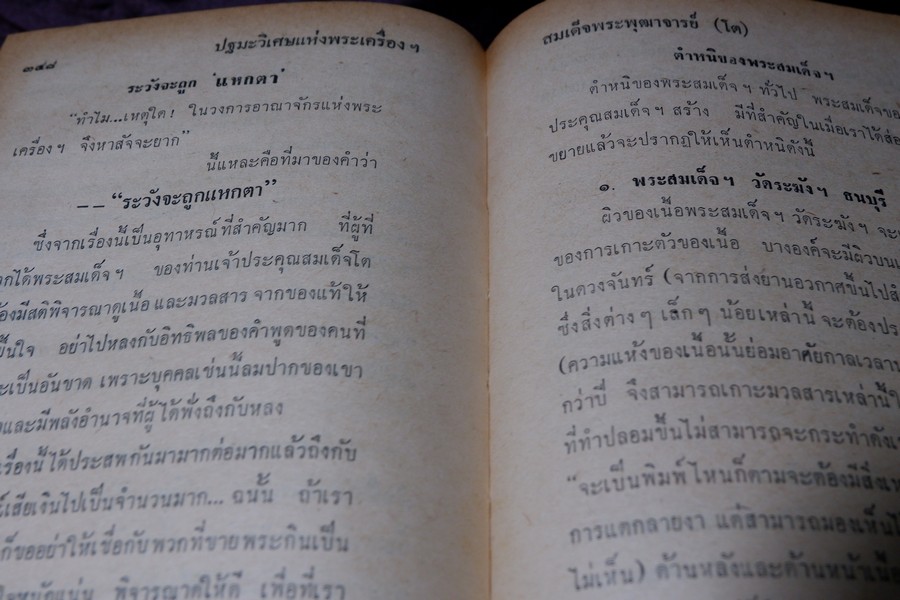 ๓๔๘
ปฐมะวิเศษแห่งพระเครื่อง ฯ
ระวังจะถูก "แหกตา"
"ทำไม...เหตุใด! ในวงการอาณาจักรแห่งพระ
เครื่อง ฯ จึงหาสัจจะยาก"
นี้แหละคือที่มาของคำว่า
-- "ระวังจะถูกแหกตา"
ซึ่งจากเรื่องนี้เป็นอุทาหรณ์ที่สำคัญมาก ที่ผู้ที่
ได้พระสมเด็จ ฯ ของท่านเจ้าประคุณสมเด็จโต
มีสติพิจารณาดูเนื้อ และมวลสาร จากของแท้ให้
อย่าไปหลงกับอิทธิพลของคำพูดของคนที่
เป็นอันขาด เพราะบุคคลเช่นนี้ลมปากของเขา
และมีพลังอำนาจที่ผู้ได้ฟังถึงกับหลง
เรื่องนี้ได้ประสพกันมามากต่อมากแล้วถึงกับ
เสียเงินไปเป็นจำนวนมาก... ฉนั้น ถ้าเรา
ก็ขออย่าให้เชื่อกับพวกที่ขายพระกินเป็น
พิจารณาดูให้ดี เพื่อที่เรา
สมเด็จพระพุฒาจารย์ (โต)
ตำหนิของพระสมเด็จ ฯ
ตำหนิของพระสมเด็จ ฯ ทั่วไป พระสมเด็จของ
ประคุณสมเด็จ ฯ สร้าง มีที่สำคัญในเมื่อเราได้ส่อง
ขยายแล้วจะปรากฏให้เห็นตำหนิดังนี้
๑. พระสมเด็จ ฯ วัดระฆัง ฯ ธนบุรี
ผิวของเนื้อพระสมเด็จ ฯ วัดระฆัง ฯ
ของการเกาะตัวของเนื้อ บางองค์จะมีผิวบน
ในดวงจันทร์ (จากการส่งยานอวกาศขึ้นไป
ซึ่งสิ่งต่าง ๆ เล็ก ๆ น้อยเหล่านี้ จะต้อง
(ความแห้งของเนื้อนั้นย่อมอาศัยกาลเวลา
กว่าปี จึงสามารถเกาะมวลสารเหล่านี้
ที่ทำปลอมขึ้นไม่สามารถจะกระทำ
"จะเป็นพิมพ์ไหนก็ตามจะต้องมี
การแตกลายงา แต่สามารถมองเห็น
ไม่เห็น) ด้านหลังและด้านหน้า